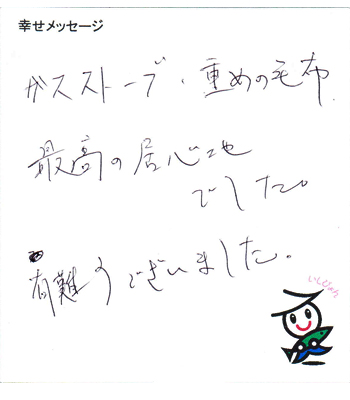 幸せメッセージ
ガスストーブ・重めの毛布
最高の居心地
でした。
有難うございました。